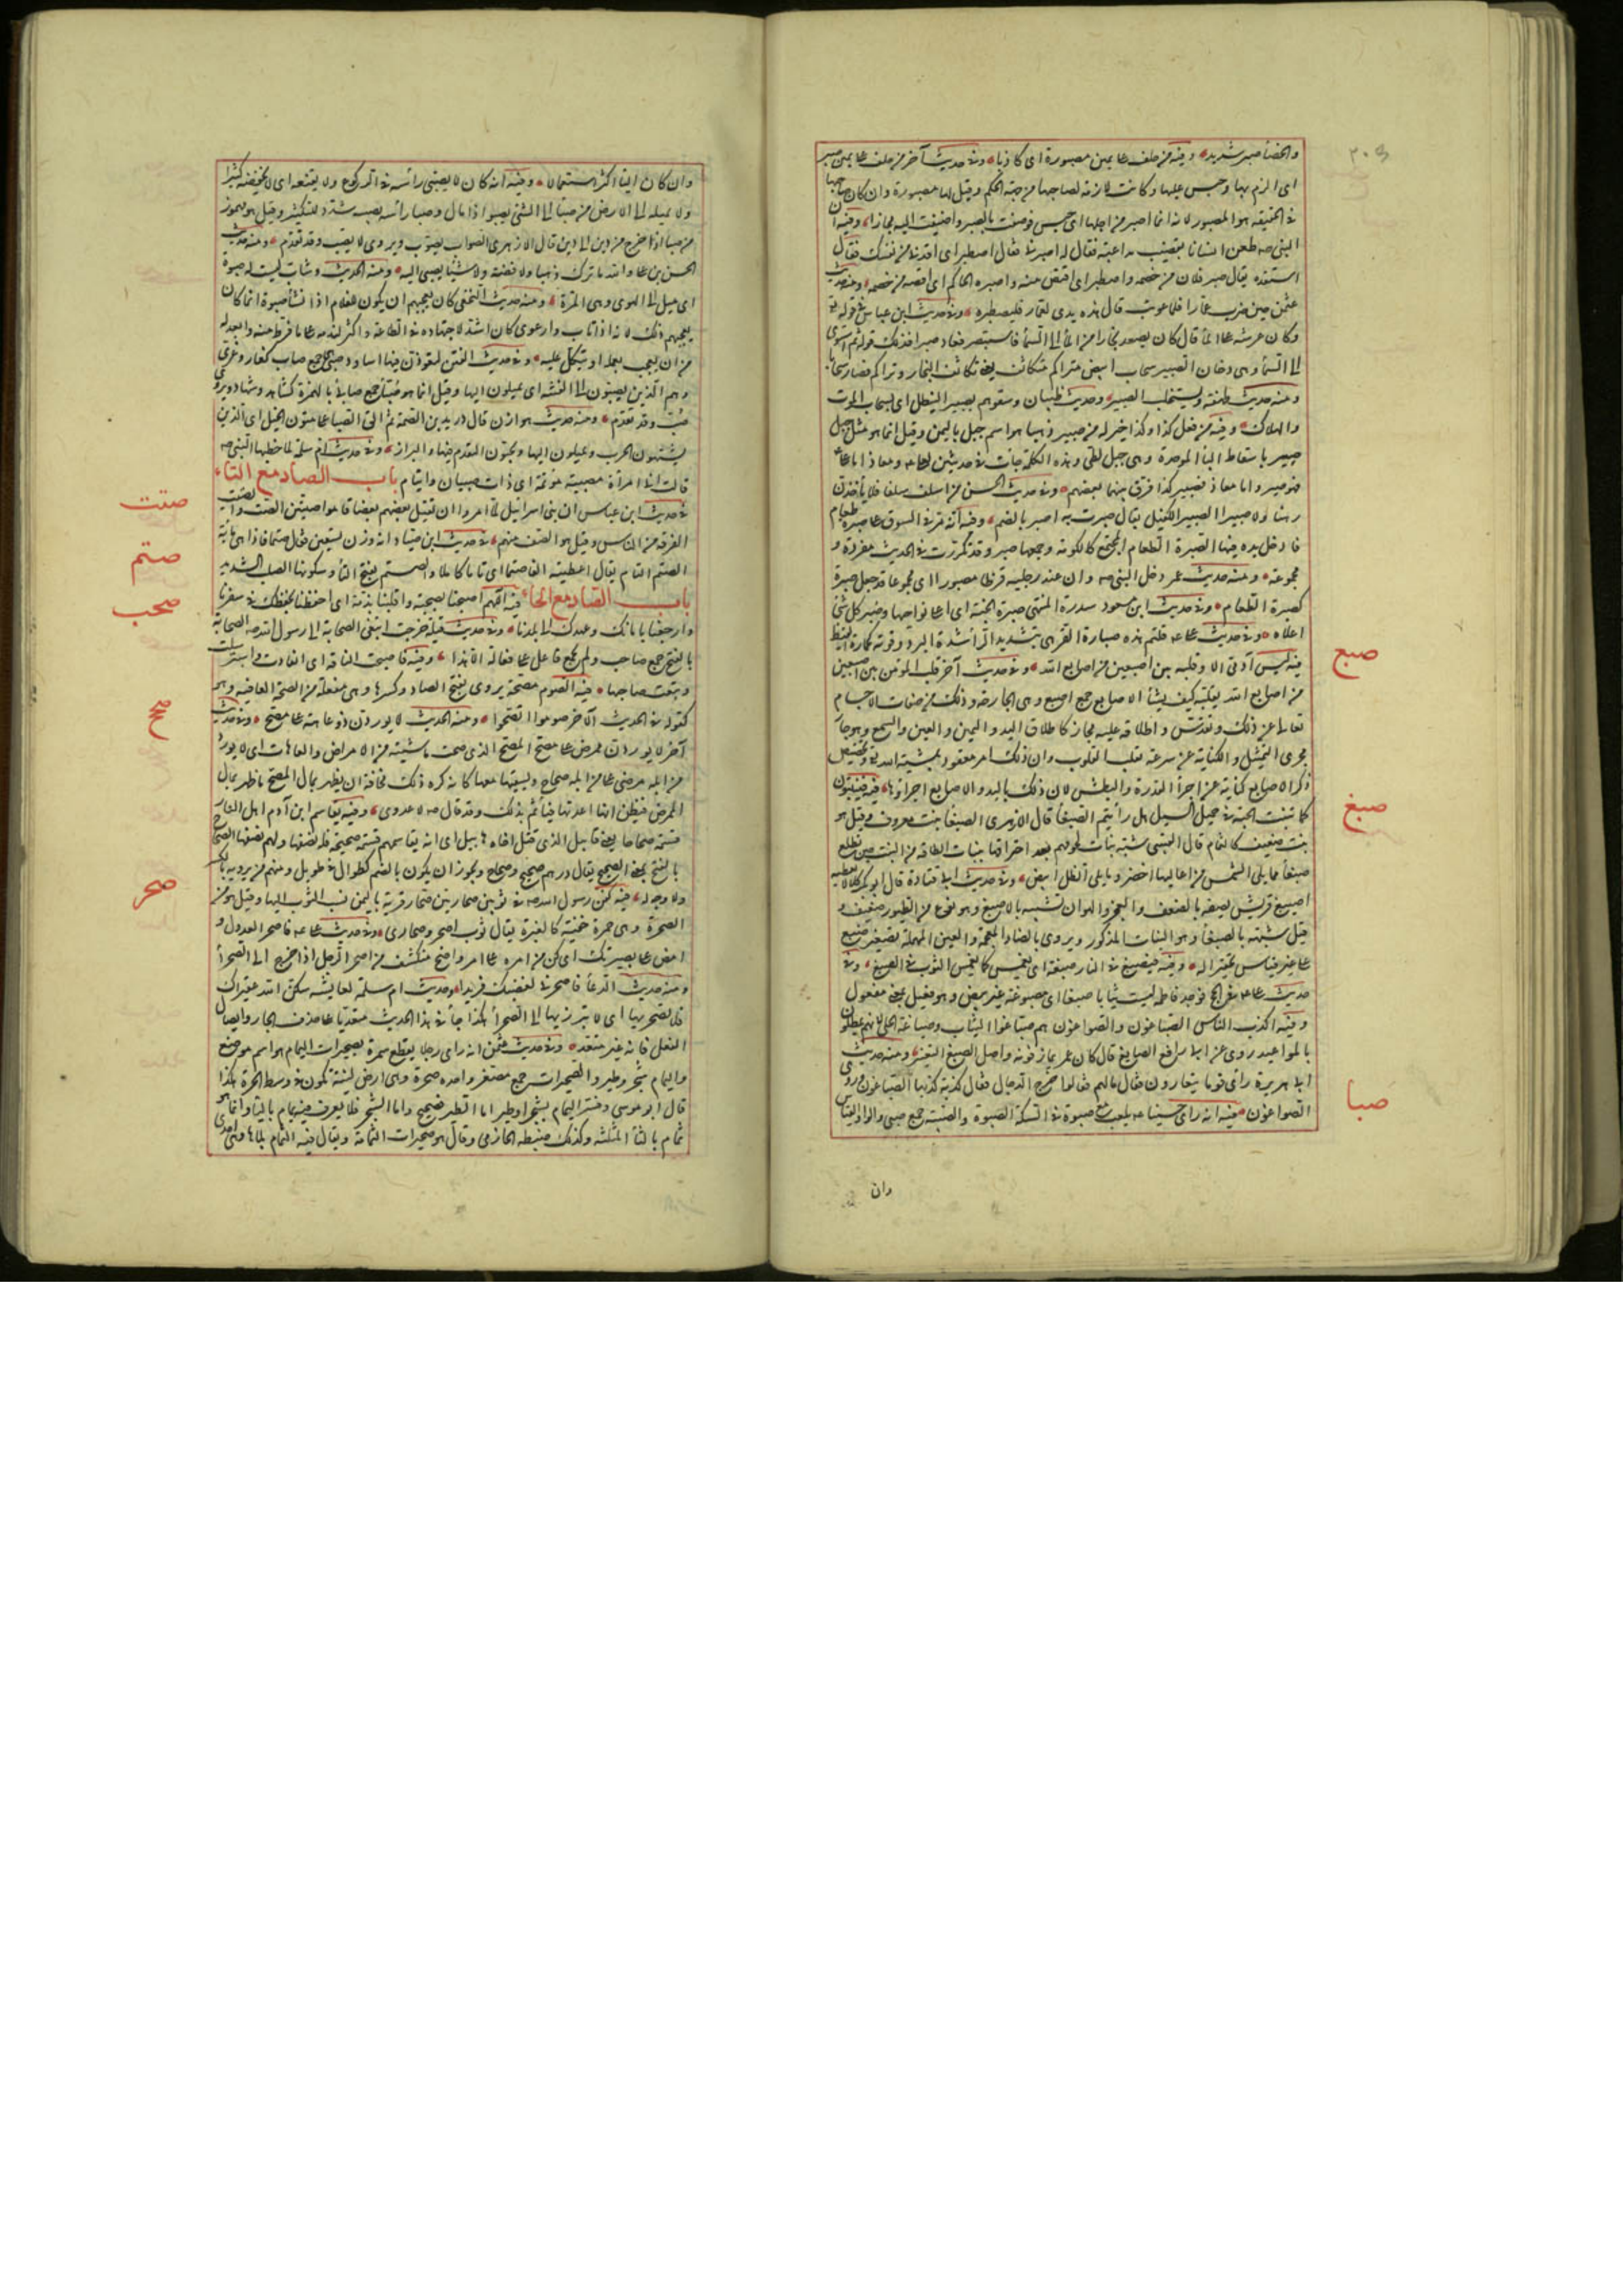 والخنسا صبر شديد وفيه من حلف على يمين مصبورة اى كاذبا وفى حديث آخر من حلف على يمين صبر
اى الزم بها وحبس عليها وكانت لازمة لصاحبها من جهة الحكم وقيل لها مصبورة وان كان صاحبها
فى الحقيقة هو المصبور لانه انما اصبر من اجلها اى حبس فوصفت بالصبر واضيفت اليه مجازا وفيه ان
النبى صه طعن انسانا بقضيب مداعبة فقال له اصبرنى قال اصطبر اى اقدنى من نفسك فقال
استقده يقال صبر فلان من خصمه واصطبر اى اقتص منه واصبره الحاكم اى اقصه من خصمه ومنه حديث
عثمن حين ضرب عمارا فلما عوتب قال هذه يدى لعمار فليصطبر وفى حديث ابن عباس فى قوله تع
وكان عرشه على الماء قال كان يصعد بخارا من الماء الى السماء فاستصبر فعاد صبيرا فذلك قوله ثم استوى
الى السماء وهى دخان الصبير سحاب ابيض متراكم متكاثف يعنى تكاثف البخار وتراكم فصار سحابا
ومنه حديث طهفة ويستحلب الصبير وحديث ظبيان وسقوهم بصبير النيطل اى بسحاب الموت
والهلاك وفيه من فعل كذا وكذا خير له من صبير ذهبا هو اسم جبل باليمن وقيل انما هو مثل جبل
صير باسقاط الباء الموحدة وهى جبل لطى وهذه الكلمة جاءت فى حديثين لعلى ومعاذ اما على
فهو صير واما معاذ فصبير كذا فرق بينهما بعضهم وفى حديث الحسن من اسلف سلفا فلا يأخذن
رهنا ولا صبيرا الصبير الكفيل يقال صبرت به اصبر بالضم وفيه انه مر فى السوق على صبرة طعام
فادخل يده فيها الصبرة الطعام المجتمع كالكومة وجمعها صبر وقد تكررت فى الحديث مفردة و
مجموعة ومنه حديث عمر دخل النبى صه وان عند رجليه قرظا مصبورا اى مجموعا قد جعل صبرة
كصبرة الطعام وفى حديث ابن مسعود سدرة المنتهى صبر الجنة اى اعلى نواحيها وصبر كل شئ
اعلاه وفى حديث على قلتم هذه صبارة القر هى بتشديد الراء شدة البرد وقوته كحمارة القيظ
فيه ليس آدمى الا وقلبه بين اصبعين من اصابع الله وفى حديث آخر قلب المؤمن بين اصبعين
من اصابع الله يقلبه كيف يشاء الاصابع جمع اصبع وهى الجارحة وذلك من صفات الاجسام
تعالى عن ذلك وتقدس واطلاقه عليه مجاز كاطلاق اليد واليمين والعين والسمع وهو جار
مجرى التمثيل والكناية عن سرعة تقلب القلوب وان ذلك امر معقود بمشية الله تع وتخصيص
ذكر الاصابع كناية عن اجراء القدرة والبطش لان ذلك باليد والاصابع اجزاؤها فيه فينبتون
كما تنبت الحبة فى حميل السيل هل رأيتم الصبغاء قال الازهرى الصبغاء نبت معروف وقيل هو
نبت ضعيف كالثمام قال القتيبى شبه نبات لحومهم بعد احتراقها بنبات الطاقة من النبت حين تطلع
صبغاء مما يلى الشمس من اعاليها اخضر وما يلى الظل ابيض وفى حديث ابى قتادة قال ابو بكر كلا لا يعطيه
اصيبغ قريش يصفه بالضعف والعجز والهوان تشبيه بالاصبغ وهو نوع من الطيور ضعيف و
قيل شبهه بالصبغاء وهو النبات المذكور ويروى بالضاد المعجمة والعين المهملة تصغير ضبع
على غير قياس تحقيرا له وفيه فيصبغ فى النار صبغة اى يغمس كما يغمس الثوب فى الصبغ وفى
حديث على فى الحج فوجد فاطمة لبست ثيابا صبيغا اى مصبوغة غير بيض وهو فعيل بمعنى مفعول
وفيه اكذب الناس الصباغون والصواغون هم صباغوا الثياب وصاغة الحلى لانهم يمطلون
بالمواعيد روى عن ابى رافع الصايغ قال كان عمر يمازحنى واصل الصبغ التغير ومنه حديث
ابى هريرة رأى قوما يتعادون فقال مالهم فقالوا خرج الدجال فقال كذبة كذبها الصباغون وروى
الصواغون فيه انه رأى حسينا يلعب مع صبوة فى السكة الصبوة والصبية جمع صبى والواو القياس
وان
صبع
صبغ
صبا
وان كان الياء اكثر استعمالا وفيه انه كان لا يصبى رأسه فى الركوع ولا يقنعه اى لا يخفضه كثيرا
ولا يميله الى الارض من صبا الى الشئ يصبو اذا مال وصبا رأسه يصبيه شدد للتكثير وقيل هو مهموز
من صبا اذا خرج من دين الى دين قال الازهرى الصواب يصوب ويروى لا يصب وقد تقدم ومنه حديث
الحسن بن على والله ما ترك ذهبا ولا فضة ولا شيئا يصبى اليه ومنه الحديث وشاب ليست له صبوة
اى ميل الى الهوى وهى المرة ومنه حديث النخعى كان يعجبهم ان يكون للغلام اذا نشأ صبوة انما كان
يعجبهم ذلك لانه اذا تاب وارعوى كان اشد لاجتهاده فى الطاعة واكثر لندمه على ما فرط منه وابعد له
من ان يعجب بعمله او يتكل عليه وفى حديث الفتن لتعودن فيها اساود صبى هى جمع صاب كغاز وغزى
وهم الذين يصبون الى الفتنة اى يميلون اليها وقيل انما هو صباء جمع صابئ بالهمزة كشاهد وشهاد ويروى
صب وقد تقدم ومنه حديث هوازن قال دريد بن الصمة ثم الق الصبا على متون الخيل اى الذين
يشتهون الحرب ويميلون اليها ويحبون التقدم فيها والبراز وفى حديث ام سلمة لما خطبها النبى صه
قالت انى امرأة مصبية موتمة اى ذات صبيان وايتام باب الصاد مع التاء
فى حديث ابن عباس ان بنى اسرائيل لما امروا ان يقتل بعضهم بعضا قاموا صتين الصت والصتيت
الفرقة من الناس وقيل هو الصف منهم فى حديث ابن صياد انه وزن تسعين فقال صتما فاذا هى مائة
الصتم التام يقال اعطيته الفا صتما اى تاما كاملا والصتم بفتح التاء وسكونها الصلب الشديد
باب الصاد مع الحاء فيه اللهم اصحبنا بصحبة واقلبنا بذمة اى احفظنا بحفظك فى سفرنا
وارجعنا بامانك وعهدك الى بلدنا وفى حديث قيلة خرجت ابتغى الصحابة الى رسول الله صه الصحابة
بالفتح جمع صاحب ولم يجئ فاعل على فعالة الا هذا وفيه فاصحبت الناقة اى انقادت واسترسلت
وتبعت صاحبها فيه الصوم مصحة يروى بفتح الصاد وكسرها وهى مفعلة من الصحة العافية وهو
كقوله فى الحديث الآخر صوموا تصحوا ومنه الحديث لا يوردن ذو عاهة على مصح وفى حديث
آخر لا يوردن ممرض على مصح المصح الذى صحت ماشيته من الامراض والعاهات اى لا يورد
من ابله مرضى على من ابله صحاح ويسقيها معها كانه كره ذلك مخافة ان يظهر بمال المصح ما ظهر بمال
الممرض فيظن انها اعدتها فيأثم بذلك وقد قال صه لا عدوى وفيه يقاسم ابن آدم اهل النار
قسمة صحاحا يعنى قابيل الذى قتل اخاه هابيل اى انه يقاسمهم قسمة صحيحة فله نصفها ولهم نصفها الصحاح
بالفتح بمعنى الصحيح يقال درهم صحيح وصحاح ويجوز ان يكون بالضم كطوال فى طويل ومنهم من يرويه بالكسر
ولا وجه له فيه كفن رسول الله صه فى ثوبين صحاريين صحار قرية باليمن نسب الثوب اليها وقيل هو من
الصحرة وهى حمرة خفية كالغبرة يقال ثوب اصحر وصحارى وفى حديث على فاصحر لعدوك و
امض على بصيرتك اى كن من امره على امر واضح منكشف من اصحر الرجل اذا خرج الى الصحراء
ومنه حديث الدعاء فاصحر بى لغضبك فريدا وحديث ام سلمة لعايشة سكن الله عقيراك
فلا تصحريها اى لا تبرزيها الى الصحراء هكذا جاء فى هذا الحديث متعديا على حذف الجار وايصال
الفعل فانه غير متعد وفى حديث عثمن انه رأى رجلا يقطع سمرة بصحيرات اليمام هو اسم موضع
واليمام شجر وطير والصحيرات جمع مصغر واحده صحرة وهى ارض لينة تكون فى وسط الحرة هكذا
قال ابو موسى وفسر اليمام بشجر او طير اما الطير فصحيح واما الشجر فلا يعرف فيه يمام بالياء وانما هو
ثمام بالثاء المثلثة وكذلك ضبطه الحازمى وقال هو صحيرات الثمامة ويقال فيه الثمام بلا هاء وهى احدى
صتت
صتم
صحب
صحح
صحر